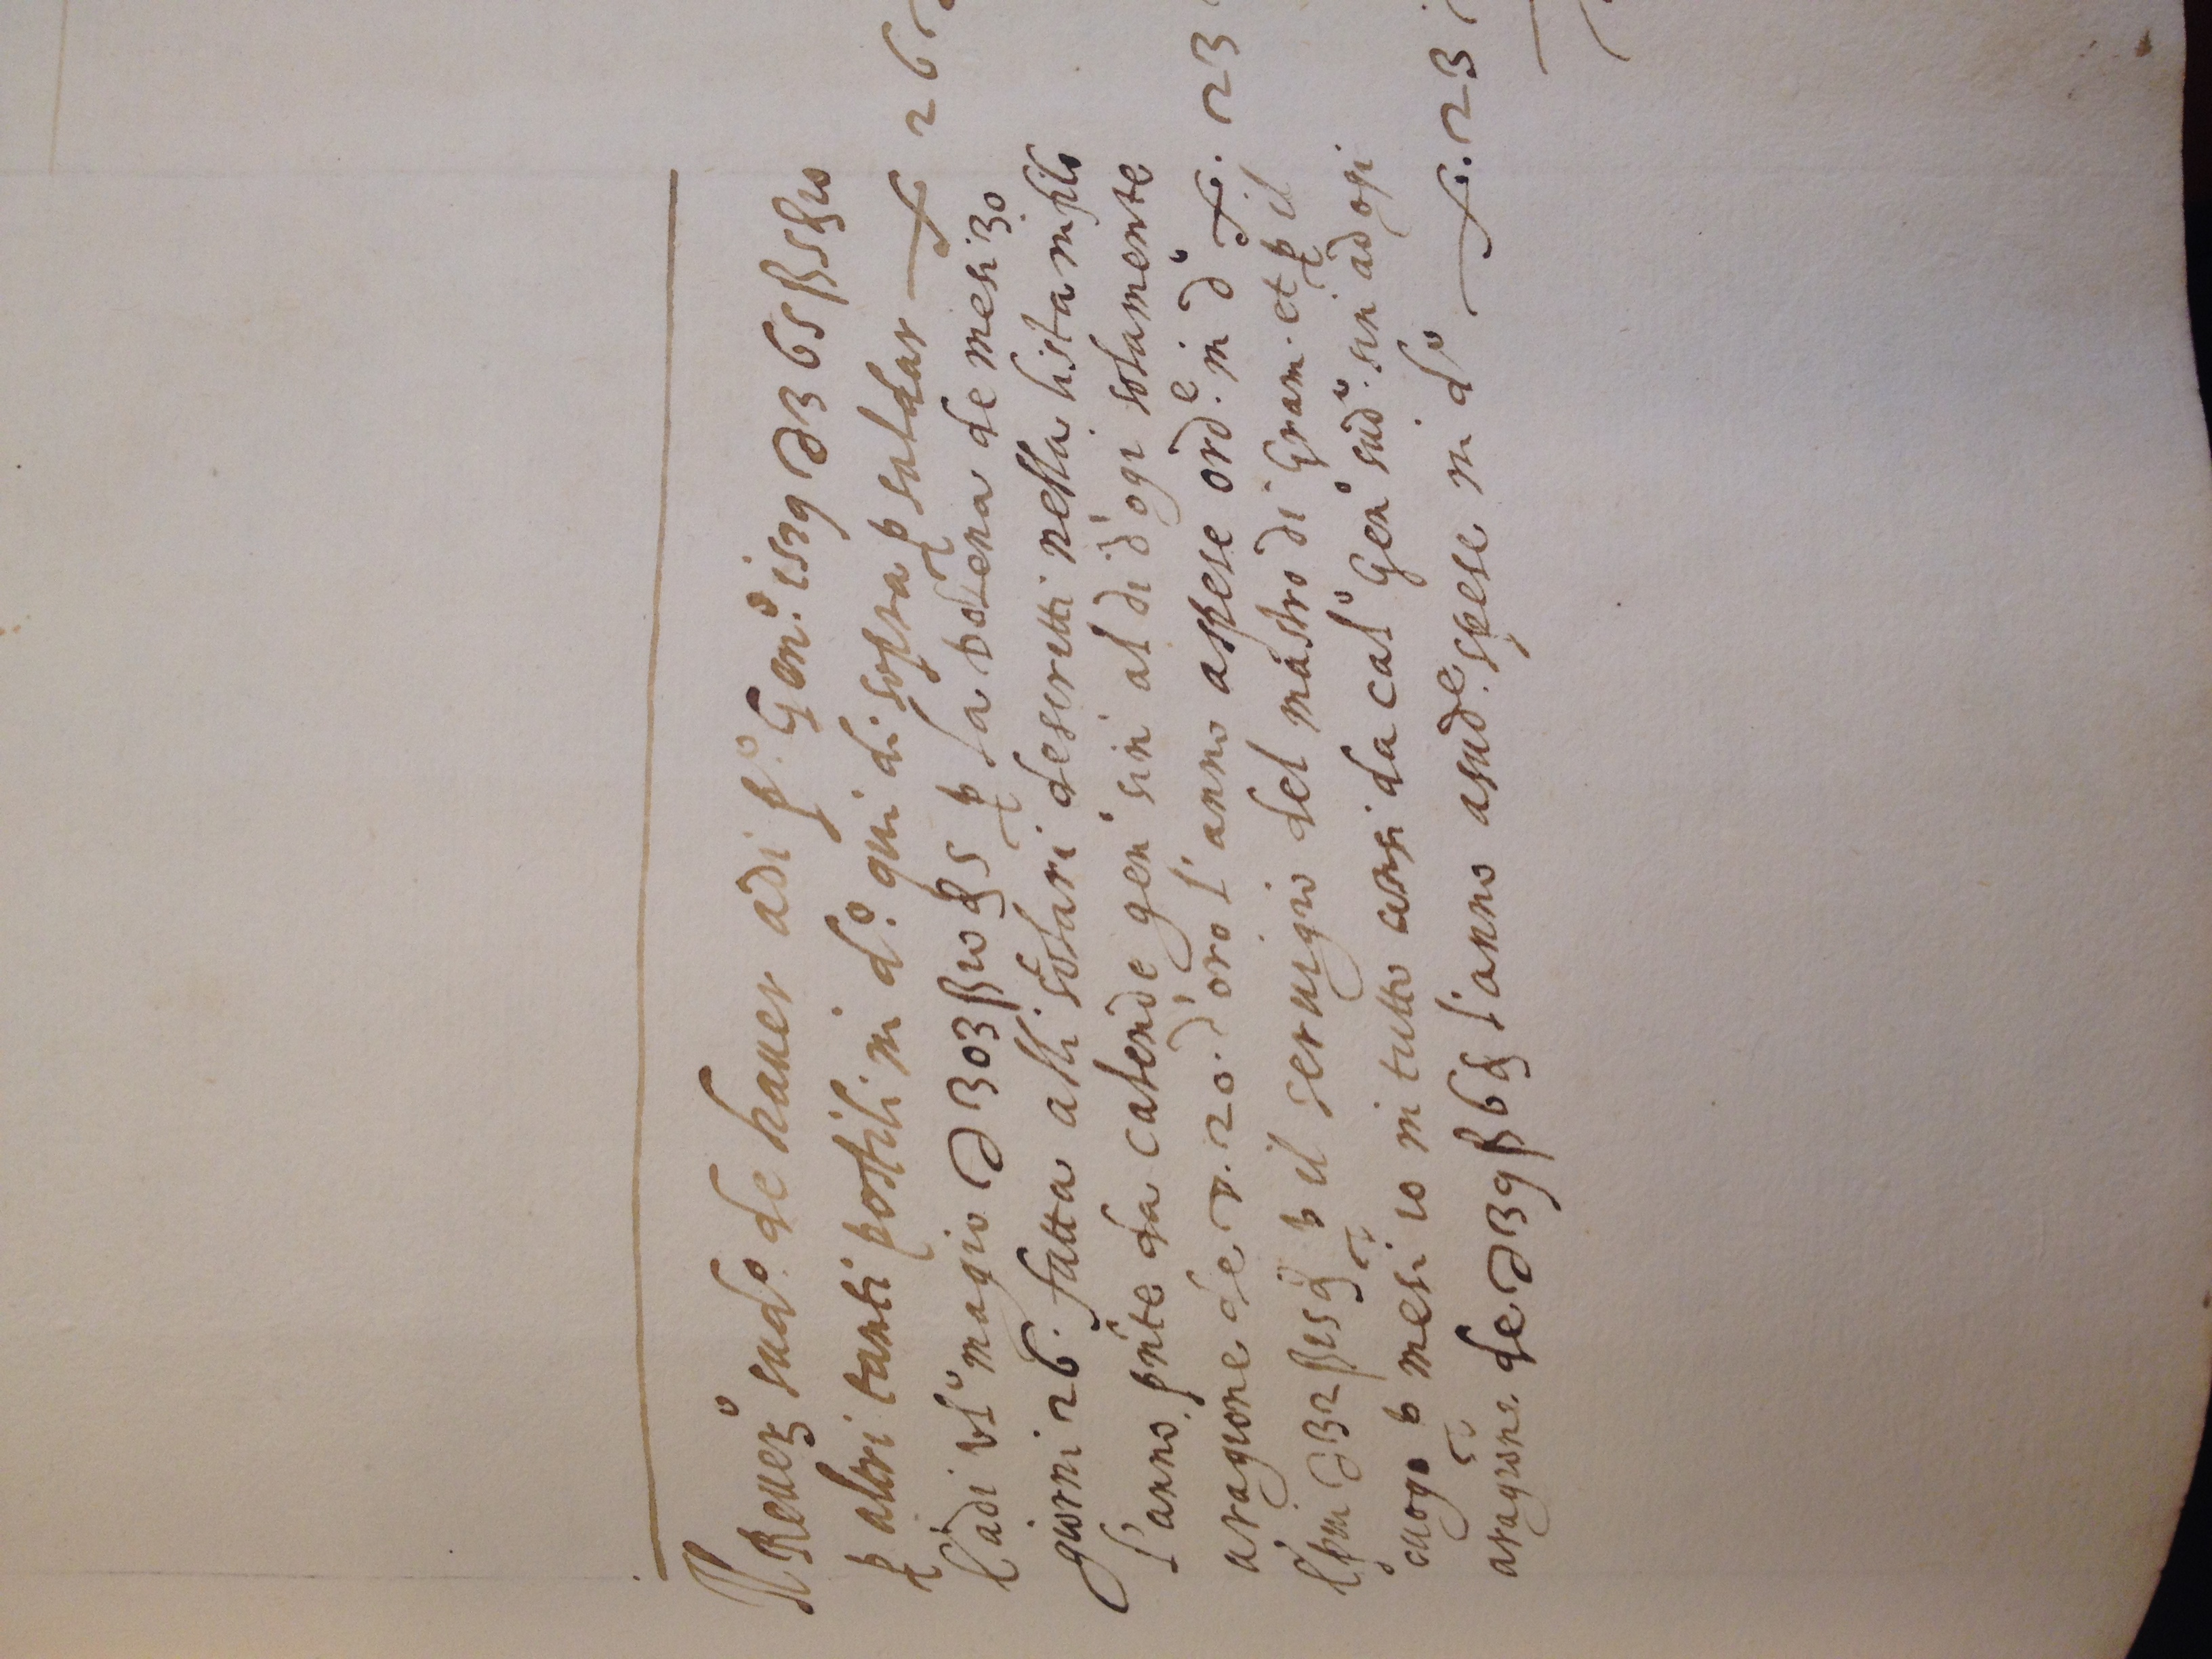 Il Reuer.° sud.° de hauer adi p.° Gen.° 1519 ∂ 365 ß
p altri tanti postili in d.° qui di sopra p saldar — f. 26
E adi vl.° magio ∂ 303 ß 10 ₰ 5 p la de mesi 30
giorni 26. fatta alli descritti nella lista in filo
l'anno pnte da calende gen.° sin al di d'ogi solamente
a ragione de v. 20. d'oro l'anno a spese ord.e in d.° f. 23
E piu ∂ 32 ß 15 ₰ p il seruigio del mastro di Gram. et p il
cuogo p mesi 10 in tutto da cal.° Gen.° sud.° sin ad ogi
a ragione de ∂ 39 ß 6 ₰ l'anno a sud.e spese in d.° — f. 23